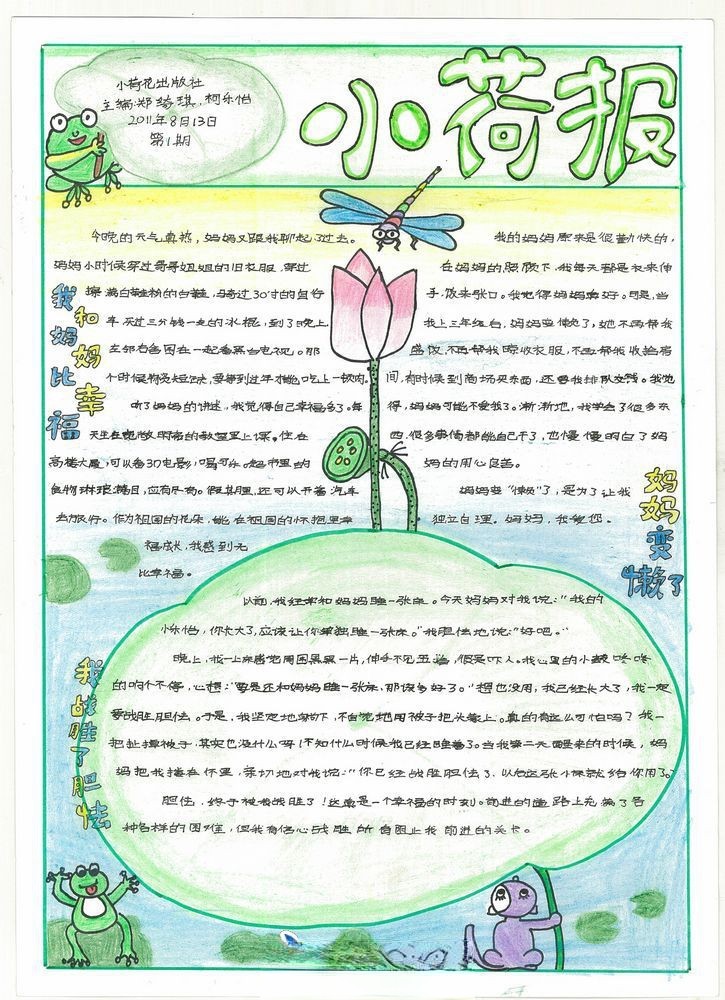 小荷花出版社
主编:郑绮琪,柯乐怡
2011年8月13日
第1期
小荷报
我和妈妈比幸福
今晚的天气真热,妈妈又跟我聊起了过去。
妈妈小时候穿过哥哥姐姐的旧衣服,穿过
擦满白鞋粉的白鞋,骑过30寸的自行
车,买过三分钱一支的冰棍,到了晚上,
左邻右舍围在一起看黑白电视。那
个时候物资短缺,要等到过年才能吃上一顿肉。
听了妈妈的讲述,我觉得自己幸福多了。每
天坐在宽敞明亮的教室里上课。住在
高楼大厦,可以看3D电影,喝可乐。超市里的
食物琳琅满目,应有尽有。假期里,还可以开着汽车
去旅行。作为祖国的花朵,能在祖国的怀抱里幸
福成长,我感到无
比幸福。
妈妈变懒了
我的妈妈原来是很勤快的,
在妈妈的照顾下,我每天都是衣来伸
手,饭来张口。我觉得妈妈真好。可是,当
我上三年级后,妈妈变懒了,她不再帮我
盛饭,不再帮我晾收衣服,不再帮我收拾房
间,有时候到商场买东西,还要我排队交钱。我觉
得,妈妈可能不爱我了。渐渐地,我学会了很多东
西,很多事情都能自己干了,也慢慢明白了妈
妈的用心良苦。
妈妈变“懒”了,是为了让我
独立自理。妈妈,我爱您。
我战胜了胆怯
以前,我经常和妈妈睡一张床。今天妈妈对我说:“我的
乐怡,你长大了,应该让你单独睡一张床。”我胆怯地说:“好吧。”
晚上,我一上床感觉周围黑黑一片,伸手不见五指,很是吓人。我心里的小鼓咚咚
的响个不停,心想:“要是还和妈妈睡一张床,那该多好了。”想也没用,我已经长大了,我一定
要战胜胆怯。于是,我坚定地躺下,不自觉地用被子把头蒙上。真的有这么可怕吗?我一
把扯掉被子,其实也没什么呀!不知什么时候我已经睡着了。当我第二天醒来的时候,妈
妈把我搂在怀里,亲切地对我说:“你已经战胜胆怯了,以后这张小床就给你用了。”
胆怯,终于被我战胜了!这真是一个幸福的时刻。前进的道路上充满了各
种各样的困难,但我有信心战胜所有阻止我前进的关卡。